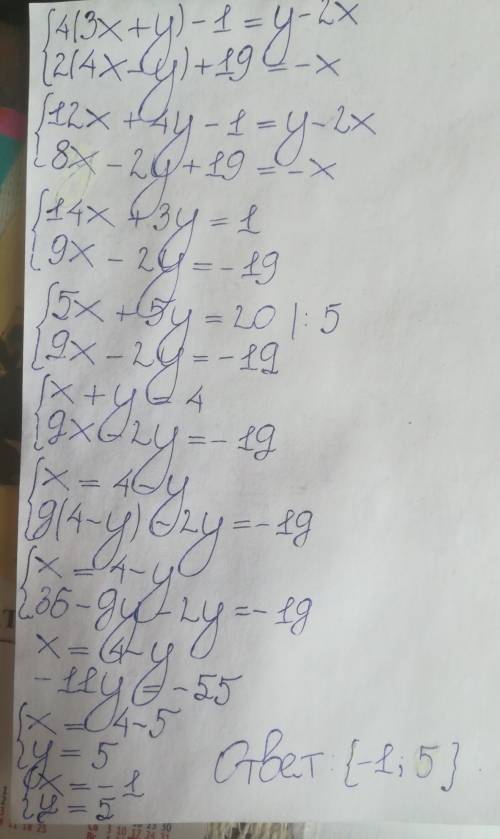 {4(3x+y)-1=y-2x
{2(4x-y)+19=-x
{12x+4y-1=y-2x
{8x-2y+19=-x
{14x+3y=1
{9x-2y=-19
{5x+5y=20 |:5
{9x-2y=-19
{x+y=4
{9x-2y=-19
{x=4-y
{9(4-y)-2y=-19
{x=4-y
{36-9y-2y=-19
x=4-y
-11y=-55
{x=4-5
{y=5
{x=-1
{y=5
Ответ: {-1; 5}